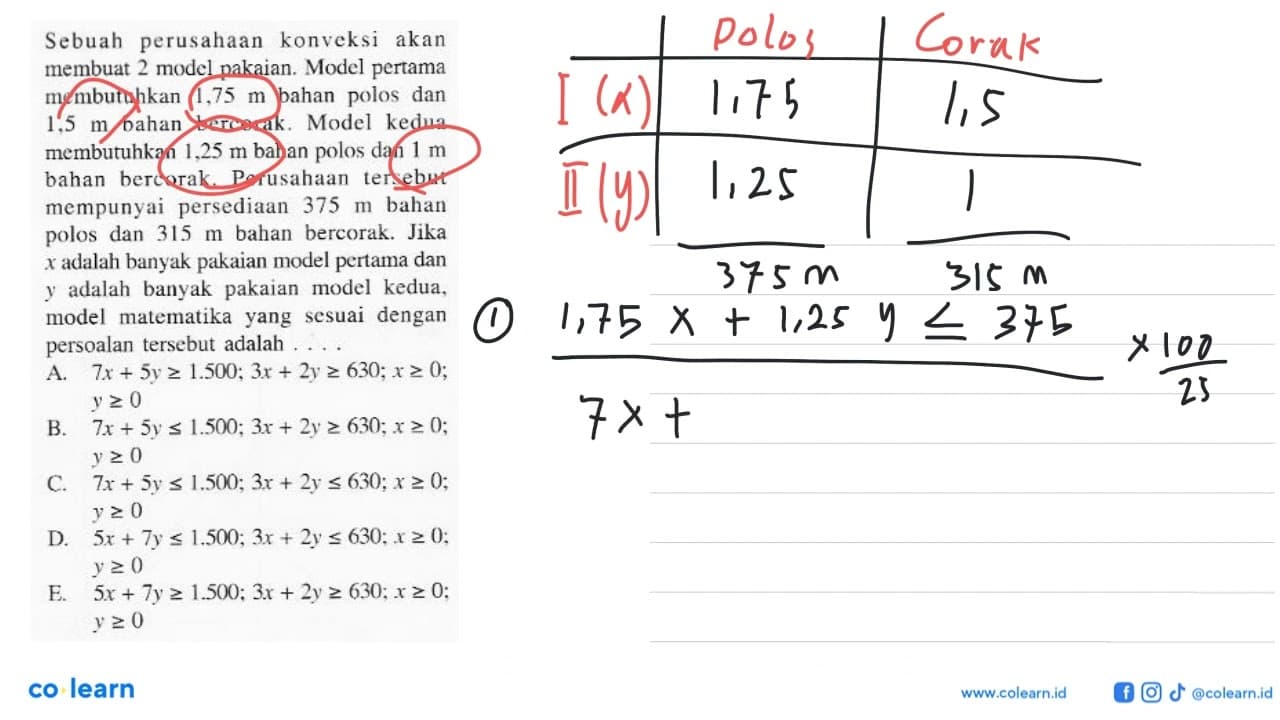 Sebuah perusahaan konveksi akan
membuat 2 model pakaian. Model pertama
membutuhkan 1,75 m bahan polos dan
1,5 m bahan bercorak. Model kedua
membutuhkan 1,25 m bahan polos dan 1 m
bahan bercorak. Perusahaan tersebut
mempunyai persediaan 375 m bahan
polos dan 315 m bahan bercorak. Jika
x adalah banyak pakaian model pertama dan
y adalah banyak pakaian model kedua,
model matematika yang sesuai dengan
persoalan tersebut adalah . . . .
A. 7x + 5y ≥ 1.500; 3x + 2y ≥ 630; x ≥ 0;
y ≥ 0
B. 7x + 5y ≤ 1.500; 3x + 2y ≥ 630; x ≥ 0;
y ≥ 0
C. 7x + 5y ≤ 1.500; 3x + 2y ≤ 630; x ≥ 0;
y ≥ 0
D. 5x + 7y ≤ 1.500; 3x + 2y ≤ 630; x ≥ 0;
y ≥ 0
E. 5x + 7y ≥ 1.500; 3x + 2y ≥ 630; x ≥ 0;
y ≥ 0
Polos Corak
I (x) 1,75 1,5
II (y) 1,25 1
375 m 315 m
① 1,75 x + 1,25 y ≤ 375
× 100
25
7x +
co learn
www.colearn.id
@colearn.id